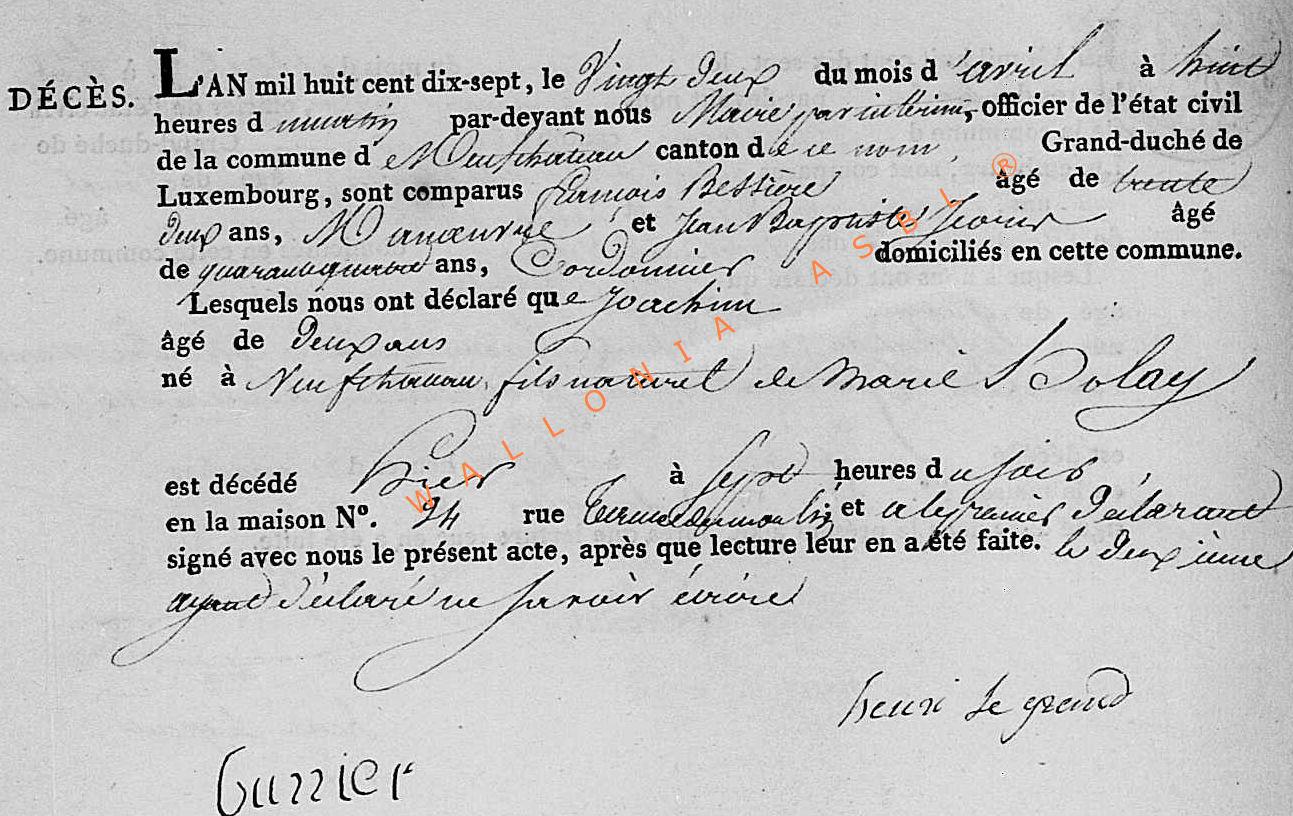 DÉCÈS. L'AN mil huit cent dix-sept, le Vingt deux du mois d'avril à huit
heures d u matin par-devant nous Maire par interim, officier de l'état civil
de la commune d e Neufchateau canton d e ce nom, Grand-duché de
Luxembourg, sont comparus François Bessière âgé de trente
deux ans, Manœuvre et Jean Baptiste âgé
de quarante quatre ans, Cordonnier domiciliés en cette commune.
Lesquels nous ont déclaré que Joachim
âgé de deux ans
né à Neufchateau, fils naturel de Marie Holay
est décédé hier à sept heures du soir,
en la maison N°. 24 rue et a le premier déclarant
signé avec nous le présent acte, après que lecture leur en a été faite. le deuxieme
ayant déclaré ne savoir écrire
henri le grand
WALLONIA ASBL ®